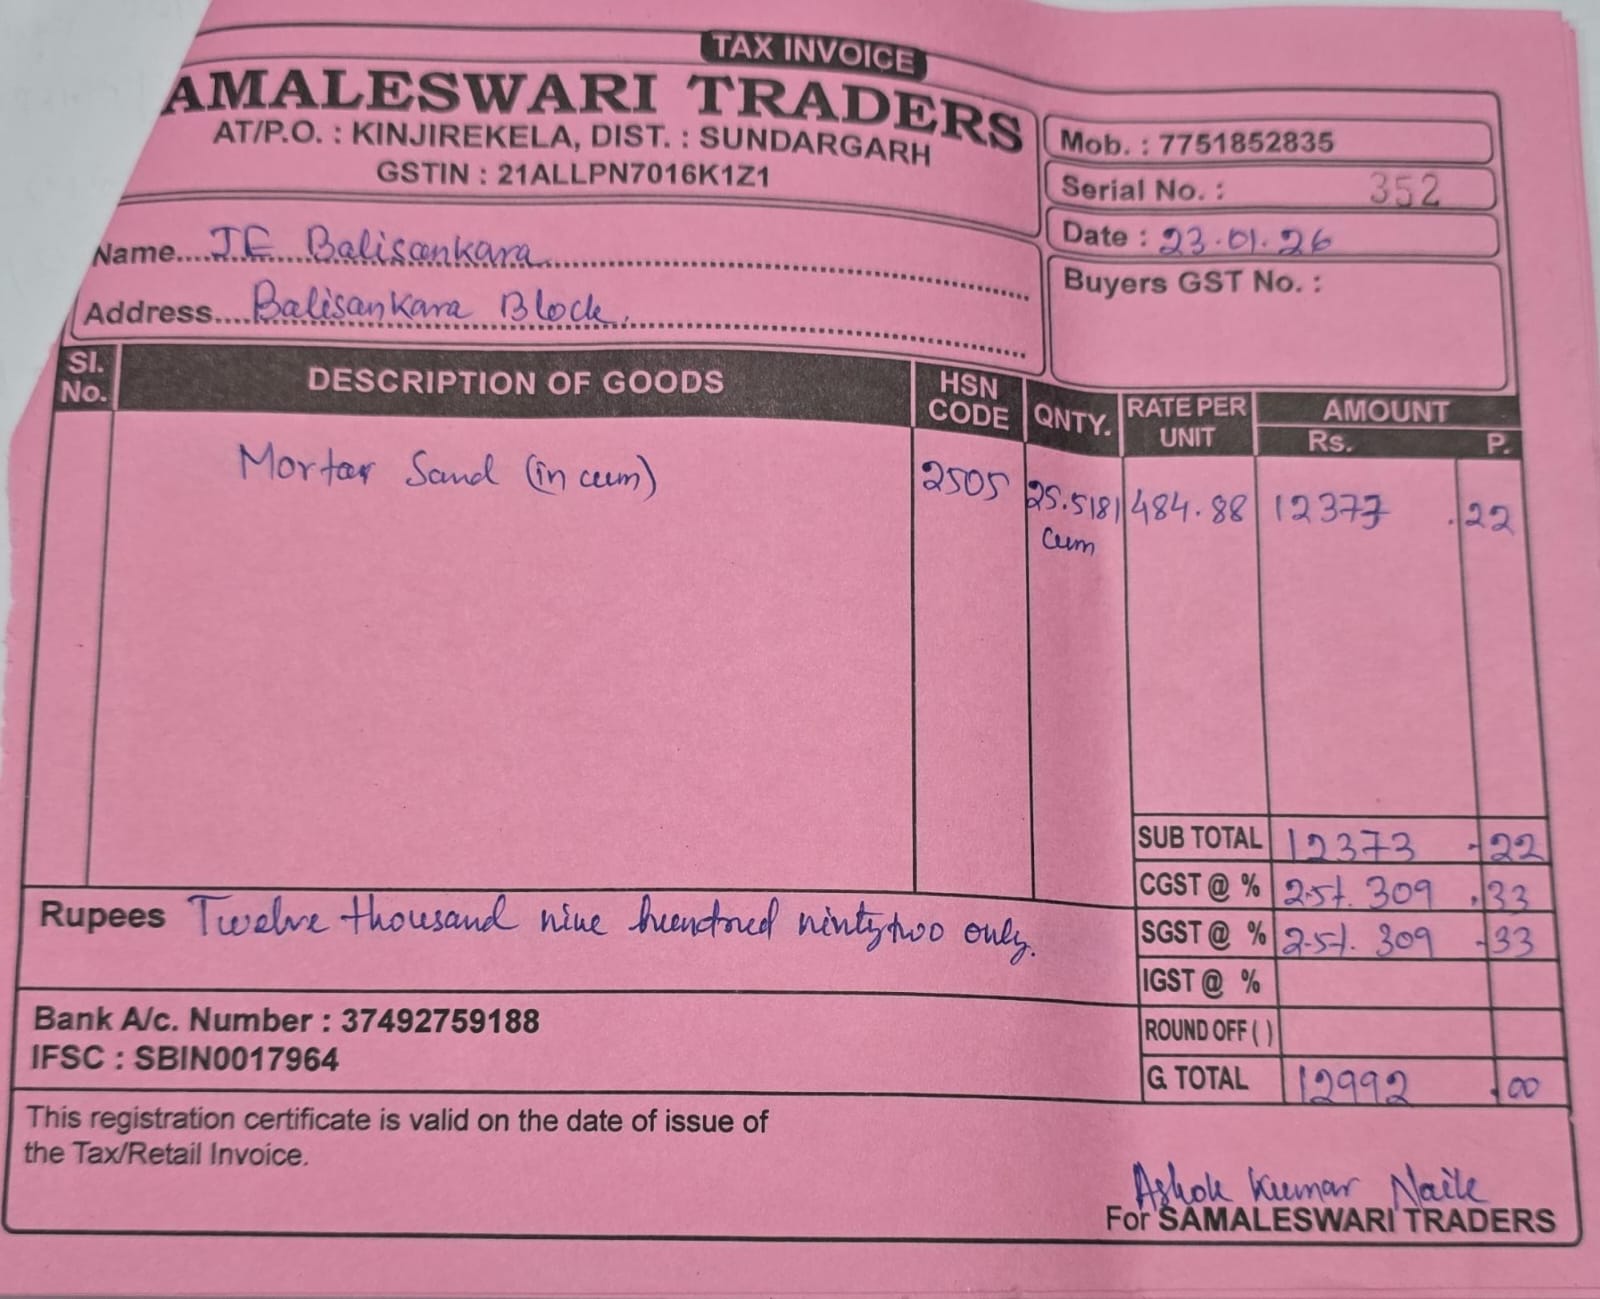 TAX INVOICE
AMALESWARI TRADERS
AT/P.O. : KINJIREKELA, DIST. : SUNDARGARH
GSTIN : 21ALLPN7016K1Z1
Mob. : 7751852835
Serial No. : 352
Date : 23.01.26
Buyers GST No. :
Name.... J.E Balisankara
Address.... Balisankara Block.
Sl. No. DESCRIPTION OF GOODS HSN CODE QNTY. RATE PER UNIT AMOUNT Rs. P.
Mortar Sand (in cum) 2505 25.5181 cum 484.88 12377 .22
SUB TOTAL 12373 .22
CGST @ % 2.5%. 309 .33
SGST @ % 2.5%. 309 .33
IGST @ %
ROUND OFF ( )
G. TOTAL 12992 .00
Rupees Twelve thousand nine hundred ninty two only.
Bank A/c. Number : 37492759188
IFSC : SBIN0017964
This registration certificate is valid on the date of issue of
the Tax/Retail Invoice.
Ashok Kumar Naik
For SAMALESWARI TRADERS